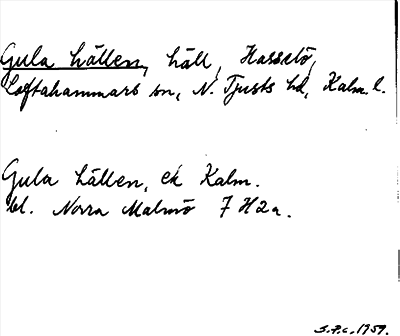 Gula hällen, häll, Hasselö,
Loftahammars sn, N. Tjusts hd, Kalm. l.
Gula hällen, ek Kalm.
bl. Norra Malmö 7 H 2 a.
S.P.c. 1959.